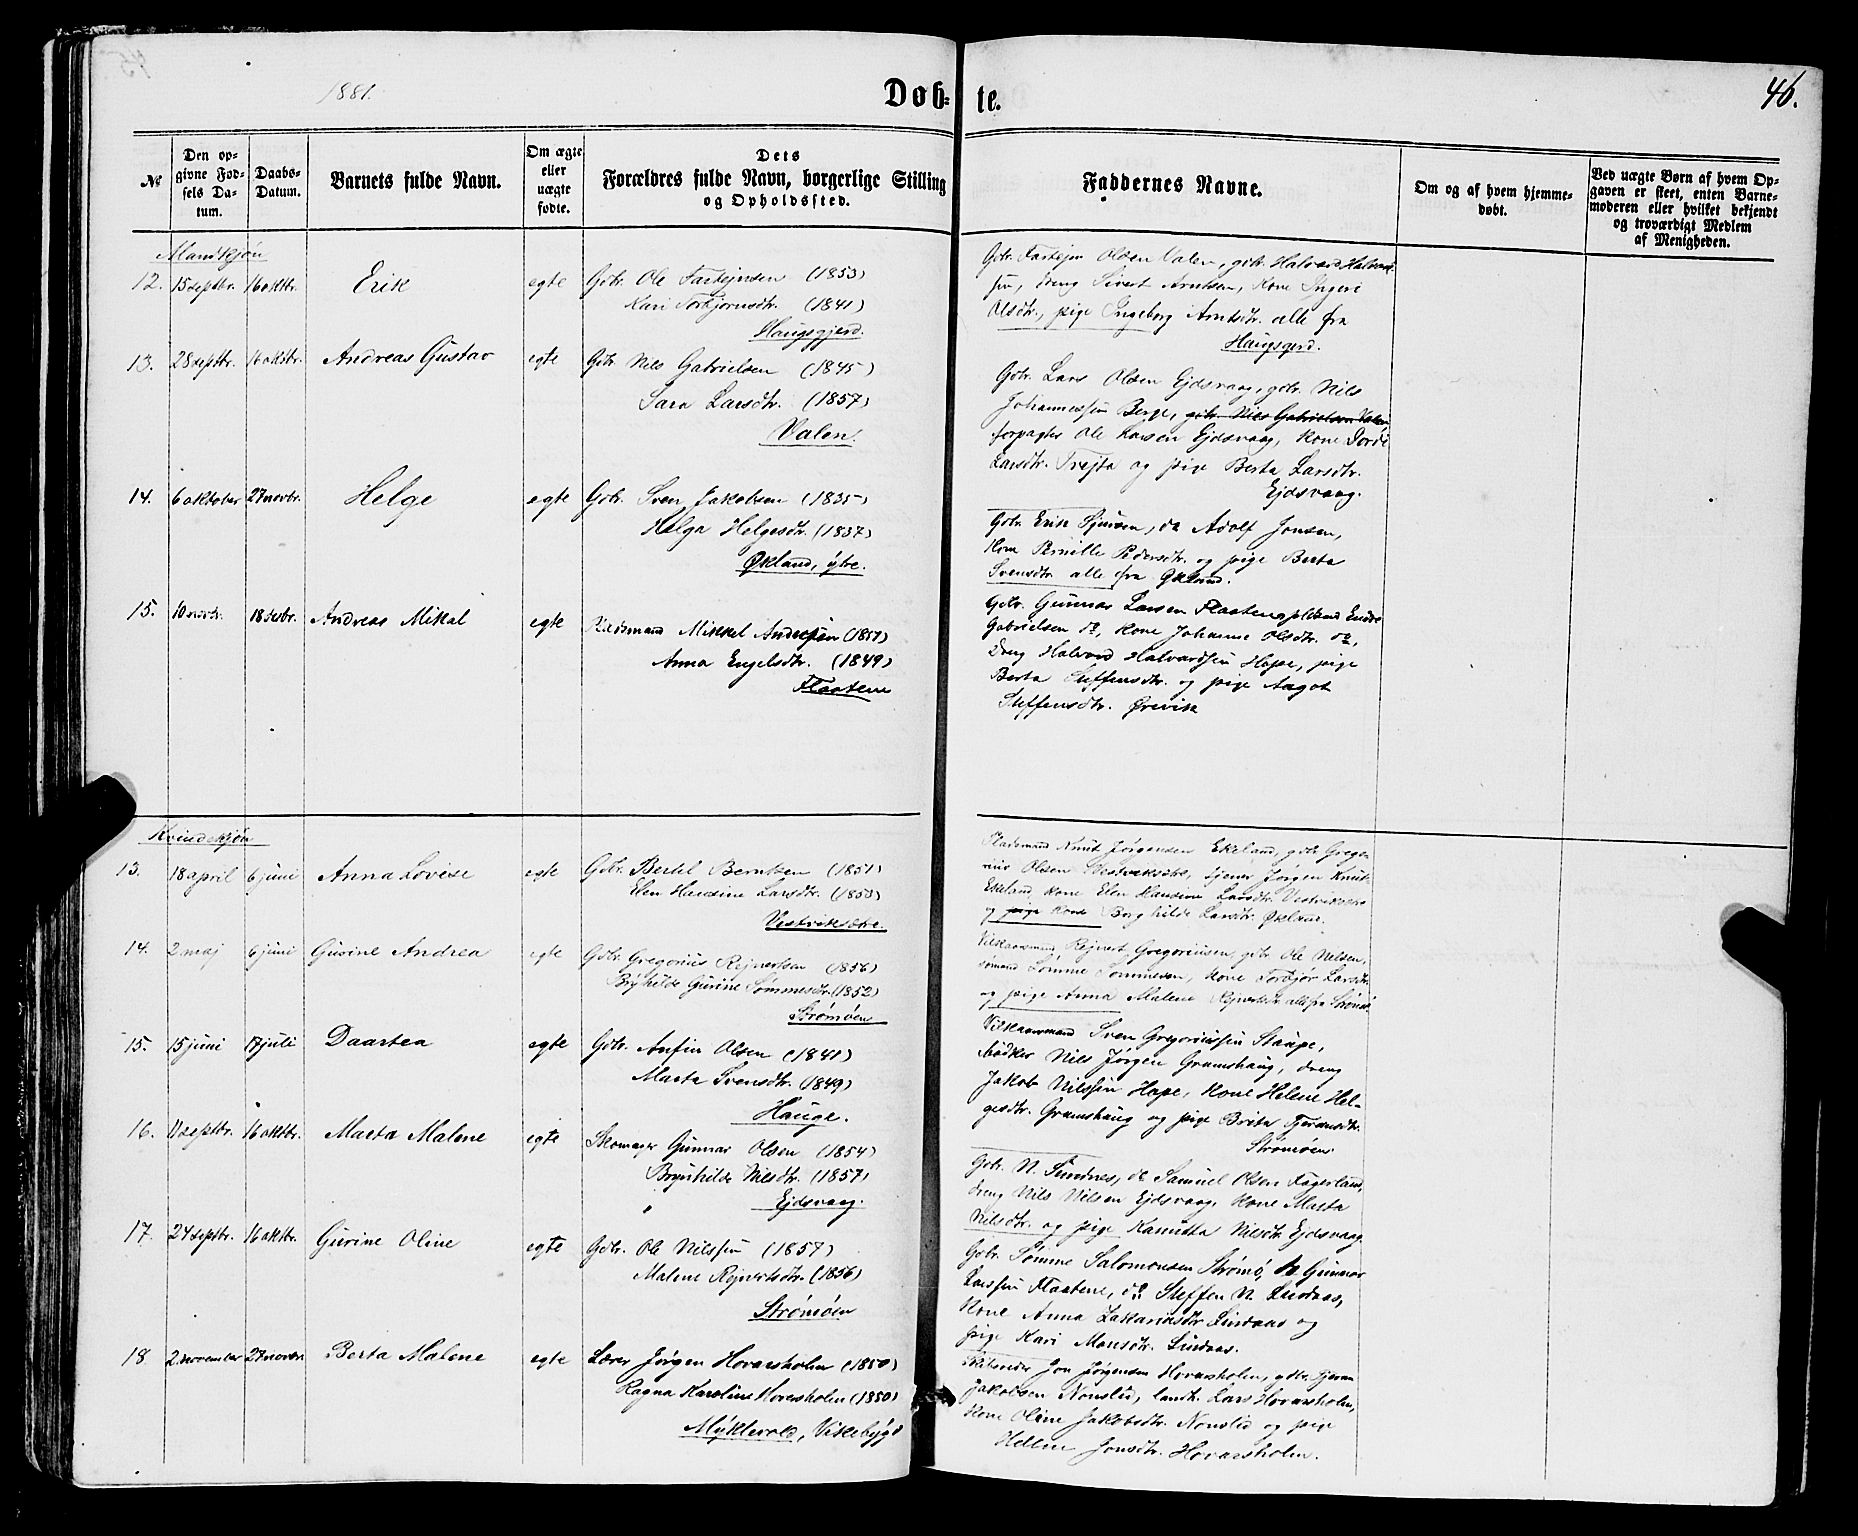 1881.
Døb-
te.
46.
№
Den op-
givne Fød-
sels Da-
tum.
Daabs-
Datum.
Barnets fulde Navn.
Om ægte
eller
uægte
fødte.
Dets
Forældres fulde Navn, borgerlige Stilling
og Opholdssted.
Faddernes Navne.
Om og af hvem hjemme-
døbt.
Ved uægte Børn af hvem Op-
gaven er skeet, enten Barne-
moderen eller hvilket bekjendt
og troværdigt Medlem
af Menigheden.
Mandkjøn
12. 15 septbr. 16 oktbr. Erik egte Gdbr. Ole Fartejnsen (1853)
Kari Torbjørnsdtr. (1841)
Haugsgjerd.
Gdbr. Fartejn Olsen Valen, gdbr. Halvard Halvard-
sen, dreng Sivert Arntsen, kone Ingeri
Olsdtr., pige Ingeborg Arntsdtr. alle fra
Haugsgerd.
13. 28 septbr. 16 oktbr. Andreas Gustav egte Gdbr. Nils Gabrielsen (1845)
Sara Larsdtr. (1857)
Valen.
Gdbr. Lars Olsen Ejdsvaag, gdbr. Nils
Johannessen Berge, gdbr. Nils Gabrielsen Valen
forpagter Ole Larsen Ejdsvaag, kone Dorde
Larsdtr. Trejta og pige Berta Larsdtr.
Ejdsvaag.
14. 6 oktober 27 novbr. Helge egte Gdbr. Sven Jakobsen (1835)
Helga Helgesdtr. (1837)
Økland, ytre.
Gdbr. Erik Sjursen, do Adolf Jonsen,
kone Pernille Pedersdtr. og pige Berta
Svensdtr. alle fra Økland.
15. 10 novbr. 18 desbr. Andreas Mikal egte Pladsmand Mikkel Andersen (1857)
Anna Engelsdtr. (1849)
Flaatene
Gdbr. Gunnar Larsen Flaatene, pldmd Endre
Gabrielsen do, kone Johanne Olsdtr. do,
Dreng Halvard Halvardsen Hope, pige
Berta Steffensdtr. og pige Aagot
Steffensdtr. Ørevik
Kvindekjøn
13. 18 april 6 juni Anna Lovise egte Gdbr. Bertel Berntsen (1851)
Elen Hansine Larsdtr. (1853)
Vestviksøtre.
Pladsmand Knut Jørgensen Ekeland, gdbr. Grego-
rius Olsen Vestviksøtre, tjener Jørgen Knuts.
Ekeland, kone Elen Hansine Larsdtr. Vestviksøtre
og pige kone Borghilde Larsdtr. Økland.
14. 2 maj 6 juni Gurine Andrea egte Gdbr. Gregorius Rejnertsen (1856)
Brýhilde Gurine Sømmesdtr. (1852)
Strømøen
Vilkaarsmand Rejnert Gregoriussen, gdbr. Ole Nilsen,
sømand Sømme Sømmesen, kone Torbjør Larsdtr.
og pige Anna Malene Rejnertsdtr. alle fra Strømø
15. 15 juni 17 juli Daartea egte Gdbr. Anfin Olsen (1841)
Marta Svensdtr. (1849)
Hauge.
Vilkaarsmand Sven Gregoriussen Staupe,
bødker Nils Jørgen Gramshaug, dreng
Jakob Nilssen Hope, kone Helene Hel-
gesdtr. Gramshaug og pige Brita Tjeransdtr.
Strømøen.
16. 11 septbr. 16 oktbr. Marta Malene egte Skomager Gunnar Olsen (1854)
Brynhilde Nilsdtr. (1857)
Ejdsvaag.
Gdbr. N. Sundnes, do Samuel Olsen Fagerland,
dreng Nils Nilsen Ejdsvaag, kone Marta
Nilsdtr. og pige Kanutta Nilsdtr. Ejdsvaag.
17. 24 septbr. 16 oktbr. Gurine Oline egte Gdbr. Ole Nilssen (1857)
Malene Rejnertsdtr. (1856)
Strømøen
Gdbr. Sømme Salomonsen Strømø, Gunnar
Larssen Flaatene, do Steffen N. Lindaas,
kone Anna Zakariasdtr. Lindaas og
pige Kari Monsdtr. Lindaas.
18 2 november 27 novbr. Berta Malene egte Lærer Jørgen Hovarsholm (1850)
Ragna Karoline Hovarsholm (1850)
Mýklevold, Vikebýgd
Skibsreder Jon Jørgensen Hovarsholm, gdbr. Tjeran
Jakobsen Nonslid, landh. Lars Hovarsholm,
kone Oline Jakobsdtr. Nonslid og pige
Helline Jonsdtr. Hovarsholm.